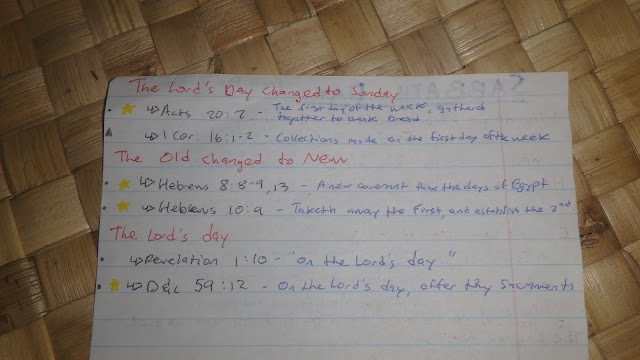 The Lord's Day changed to Sunday
Acts 20:7 - The first day of the week, gathered
together to break bread
1 Cor. 16:1-2 - Collections made on the first day of the week
The Old changed to New
Hebrews 8:8-9, 13 - A new covenant than the days of Egypt
Hebrews 10:9 - Taketh away the First, and establish the 2nd
The Lord's day
Revelation 1:10 - "on the Lord's day"
D&C 59:12 - On the Lord's day, offer thy Sacraments